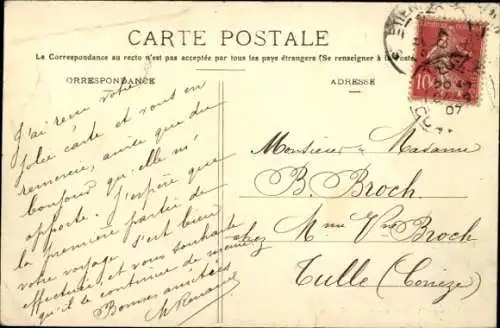 CARTE POSTALE
La Correspondance au recto n'est pas acceptée par tous les pays étrangers (Se renseigner à la Poste)
ORRESPONDANCE
ADRESSE
J'ai reçu votre
jolie carte et vous en
remercie, ainsi que du
bonjour qu'elle m'
apporte. J'espère que
la première partie de
votre voyage s'est bien
effectuée, et vous souhaite
qu'il le continue de même
Bonnes amitiés
Monsieur & Madame
B. Broch.
chez Mme Vve Broch
Tulle (Corrèze)
10
07